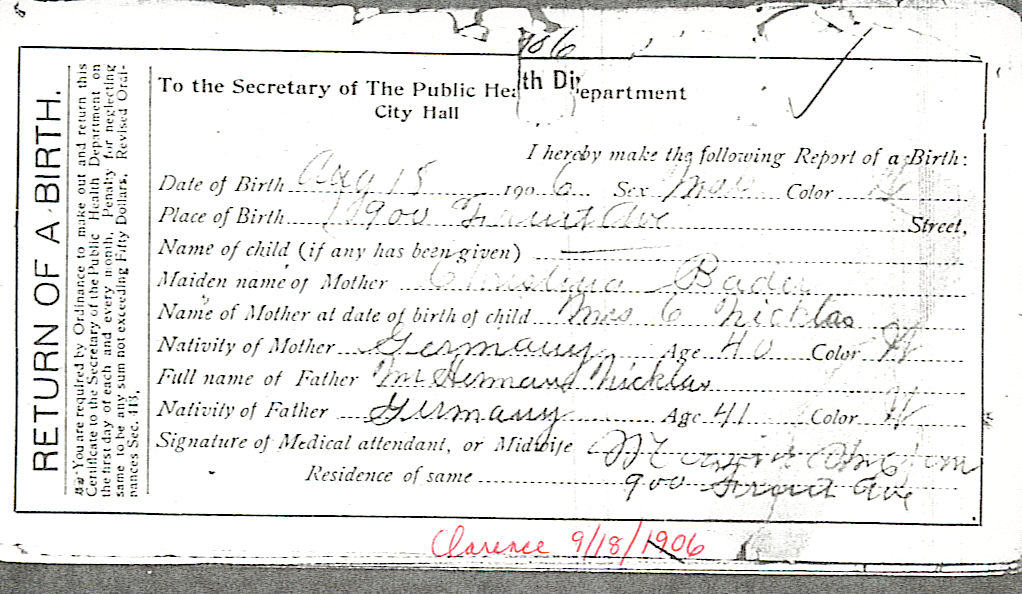 906
To the Secretary of The Public Hea th Di epartment
City Hall
RETURN OF A BIRTH.
You are required by Ordinance to make out and return this
Certificate to the Secretary of the Public Health Department on
the first day of each and every month. Penalty for neglecting
same to be any sum not exceeding Fifty Dollars. Revised Ordi-
nances Sec. 413.
I hereby make the following Report of a Birth:
Date of Birth Aug 18 1906 Sex Color W
Place of Birth 1900 Ave Street,
Name of child (if any has been given)
Maiden name of Mother Bader
Name of Mother at date of birth of child Mrs C Nicklas
Nativity of Mother Germany Age 40 Color W
Full name of Father Mr Hermann Nicklas
Nativity of Father Germany Age 41 Color W
Signature of Medical attendant, or Midwife
Residence of same 900 Ave
Clarence 9/18/1906